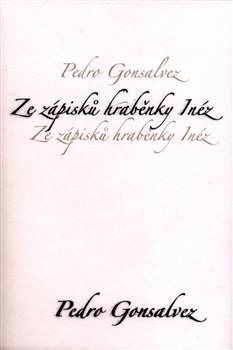 Pedro Gonsalvez
Ze zápisků hraběnky Inéz
Ze zápisků hraběnky Inéz
Pedro Gonsalvez